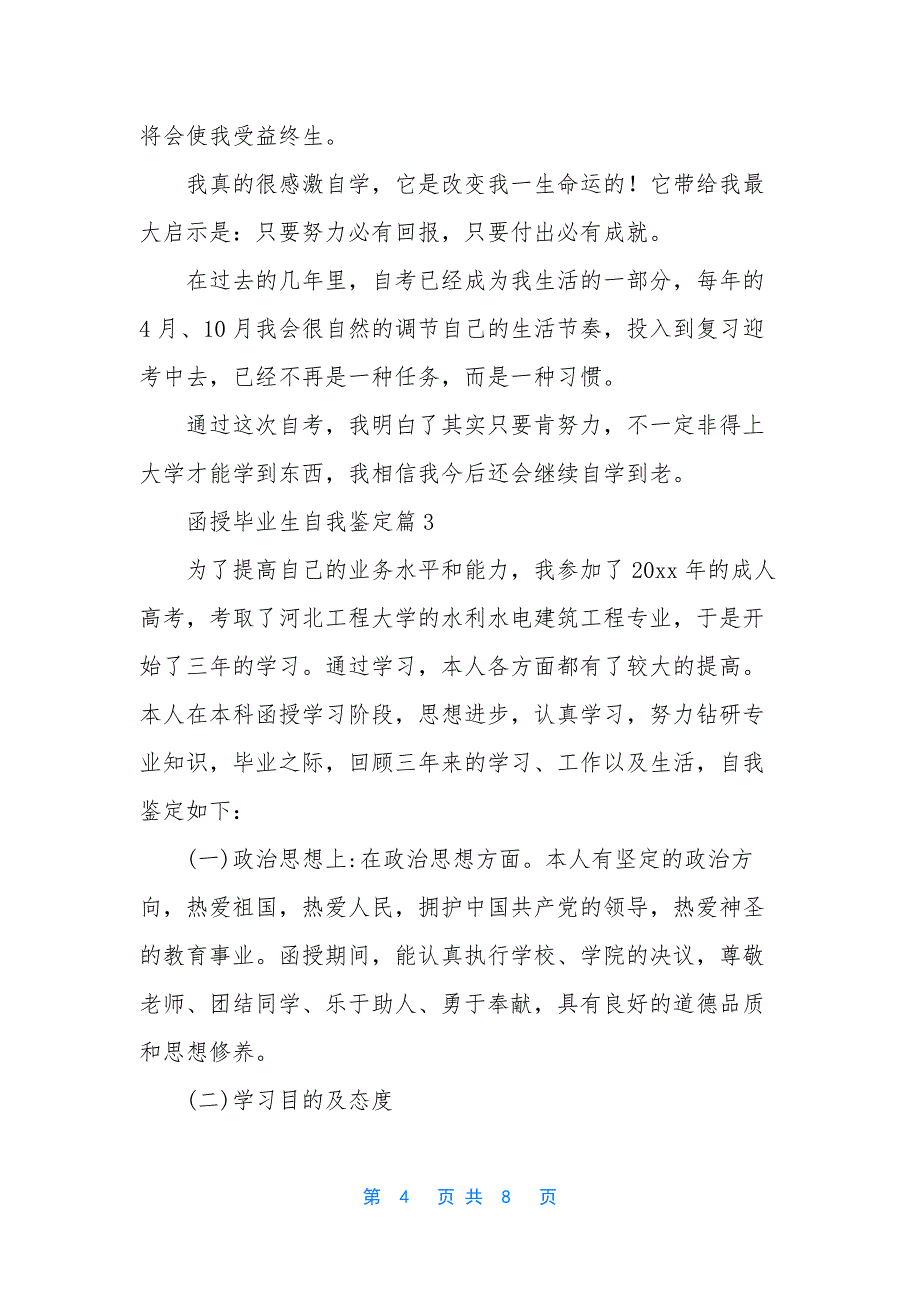 将会使我受益终生。
我真的很感激自学，它是改变我一生命运的！它带给我最
大启示是：只要努力必有回报，只要付出必有成就。
在过去的几年里，自考已经成为我生活的一部分，每年的
4 月、10 月我会很自然的调节自己的生活节奏，投入到复习迎
考中去，已经不再是一种任务，而是一种习惯。
通过这次自考，我明白了其实只要肯努力，不一定非得上
大学才能学到东西，我相信我今后还会继续自学到老。
函授毕业生自我鉴定篇 3
为了提高自己的业务水平和能力，我参加了 20xx 年的成人
高考，考取了河北工程大学的水利水电建筑工程专业，于是开
始了三年的学习。通过学习，本人各方面都有了较大的提高。
本人在本科函授学习阶段，思想进步，认真学习，努力钻研专
业知识，毕业之际，回顾三年来的学习、工作以及生活，自我
鉴定如下：
(一)政治思想上:在政治思想方面。本人有坚定的政治方
向，热爱祖国，热爱人民，拥护中国共产党的领导，热爱神圣
的教育事业。函授期间，能认真执行学校、学院的决议，尊敬
老师、团结同学、乐于助人、勇于奉献，具有良好的道德品质
和思想修养。
(二)学习目的及态度
第 4 页 共 8 页